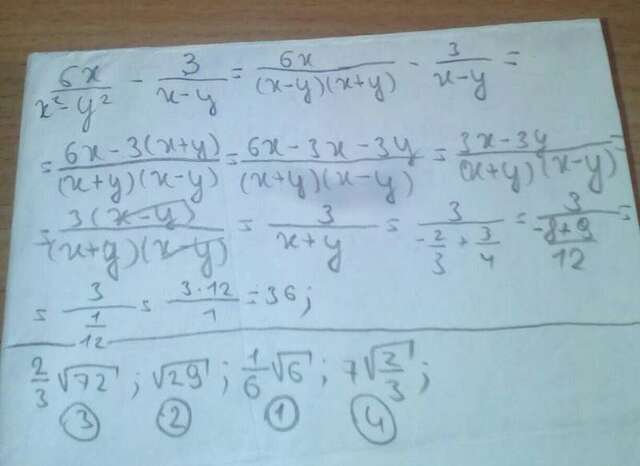 6x/(x²-y²) - 3/(x-y) = 6x/((x-y)(x+y)) - 3/(x-y) =
= (6x-3(x+y))/((x+y)(x-y)) = (6x-3x-3y)/((x+y)(x-y)) = (3x-3y)/((x+y)(x-y)) =
= 3(x-y)/((x+y)(x-y)) = 3/(x+y) = 3/(-2/3+3/4) = 3/((-8+9)/12) =
= 3/(1/12) = (3·12)/1 = 36;
2/3√72; √29; 1/6√6; 7√(2/3);
③ ② ① ④